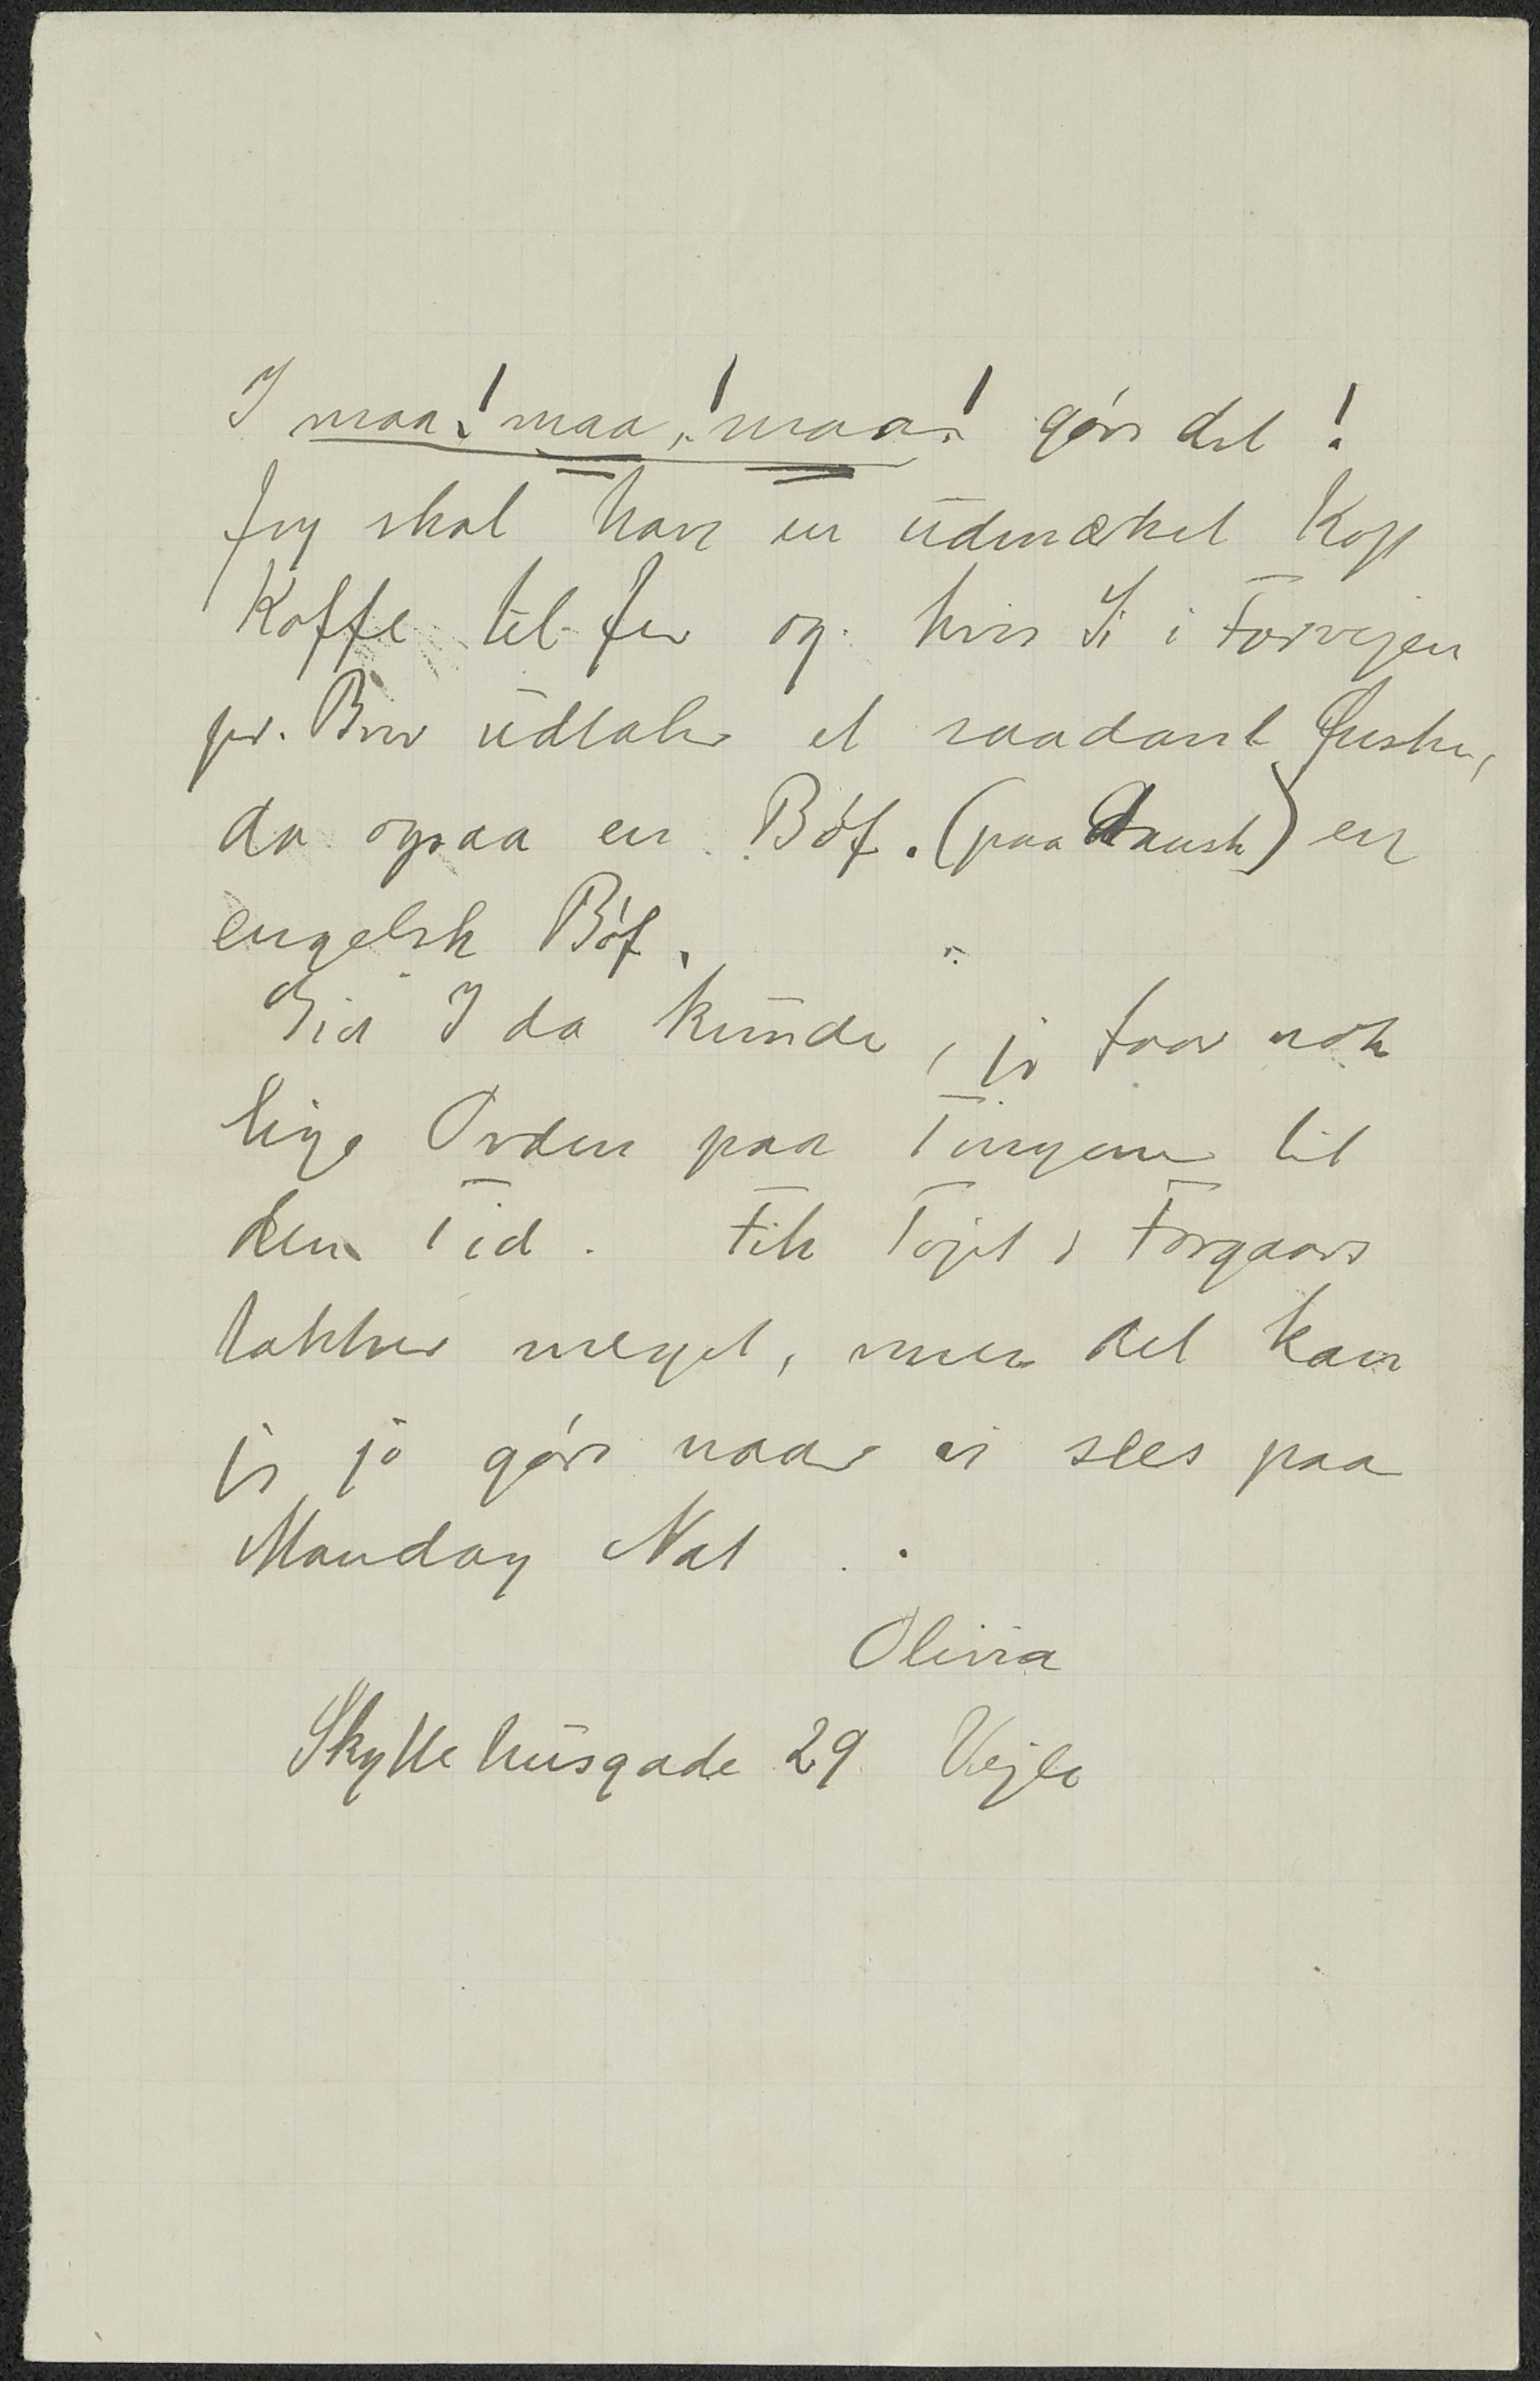 I maa! maa! maa! gøre det!
Jeg skal have en udmærket Kop
Kaffe til Jer og hvis I i Forvejen
pr. Brev udtaler et saadant Ønske,
da ogsaa en Bøf. (paa dansk) en
engelsk Bøf.
Gid I da kunde, jeg faar nok
lige Orden paa Tingene til
den Tid. Fik Tøjet i Forgaars
takker meget, men det kan
jeg jo gøre naar vi sees paa
Mandag Nat.
Olivia
Skyttehusgade 29 Vejle